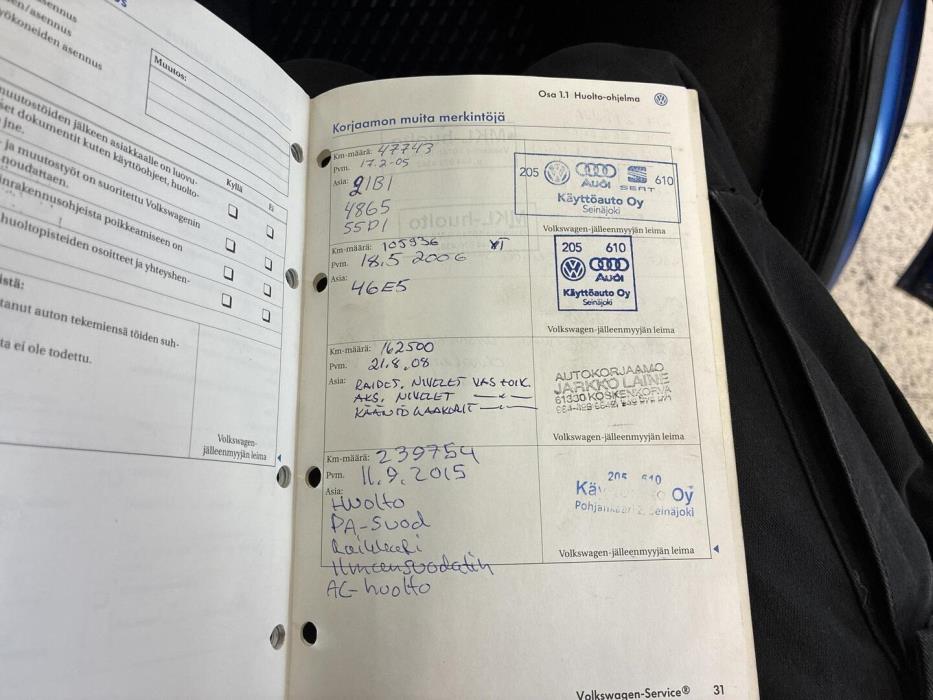 asennus
en/asennus
yökoneiden asennus
Muutos:
muutostöiden jälkeen asiakkaalle on luovu-
set dokumentit kuten käyttöohjeet, huolto-
jne.
Kyllä
Ei
ja muutostyöt on suoritettu Volkswagenin
noudattaen.
nrakennusohjeista poikkeamiseen on
huoltopisteiden osoitteet ja yhteyshen-
istä:
tanut auton tekemiensä töiden suh-
ta ei ole todettu.
Volkswagen-
jälleenmyyjän leima
Osa 1.1 Huolto-ohjelma
Korjaamon muita merkintöjä
Km-määrä: 47743
Pvm. 17.2-05
Asia: 21B1
4865
55D1
205 Audi SEAT 610
Käyttöauto Oy
Seinäjoki
Volkswagen-jälleenmyyjän leima
Km-määrä: 105936
Pvm. 18.5 2006
Asia:
46E5
205 610
Audi
Käyttöauto Oy
Seinäjoki
Volkswagen-jälleenmyyjän leima
Km-määrä: 162500
Pvm. 21.8.08
Asia: RAIDET. NIVELET VAS+OIK.
AKS. NIVELET
KÄÄNTÖ
AUTOKORJAAMO
JARKKO LAINE
61330 KOSKENKORVA
Volkswagen-jälleenmyyjän leima
Km-määrä: 239754
Pvm. 11.9.2015
Asia:
Huolto
PA-Suod
AC-huolto
Oy
Seinäjoki
Volkswagen-jälleenmyyjän leima
Volkswagen-Service® 31